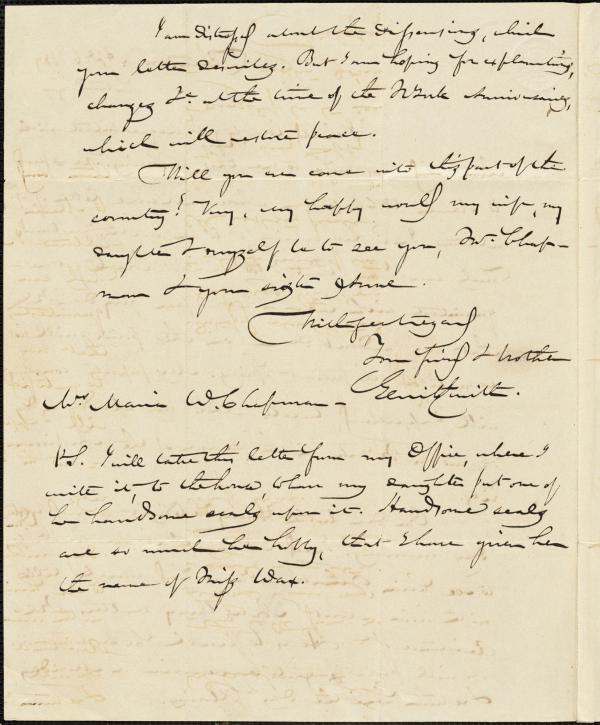 I am distressed about the dissensions, which
your letter describes. But I am hoping for explanations,
changes &c. at the time of the N York Anniversaries,
which will restore peace.
Will you ever come into this part of the
country? Very, very happy would my wife, my
daughter & myself be to see you, Mr. Chap-
man & your sister Anne.
With great regard
Your friend & brother
Gerrit Smith.
Mrs Maria W. Chapman —
P.S. I will take this letter from my Office, where I
write it, to the house, to have my daughter put one of
her handsome seals upon it. Handsome seals
are so much her hobby, that I have given her
the name of Miss Wax.